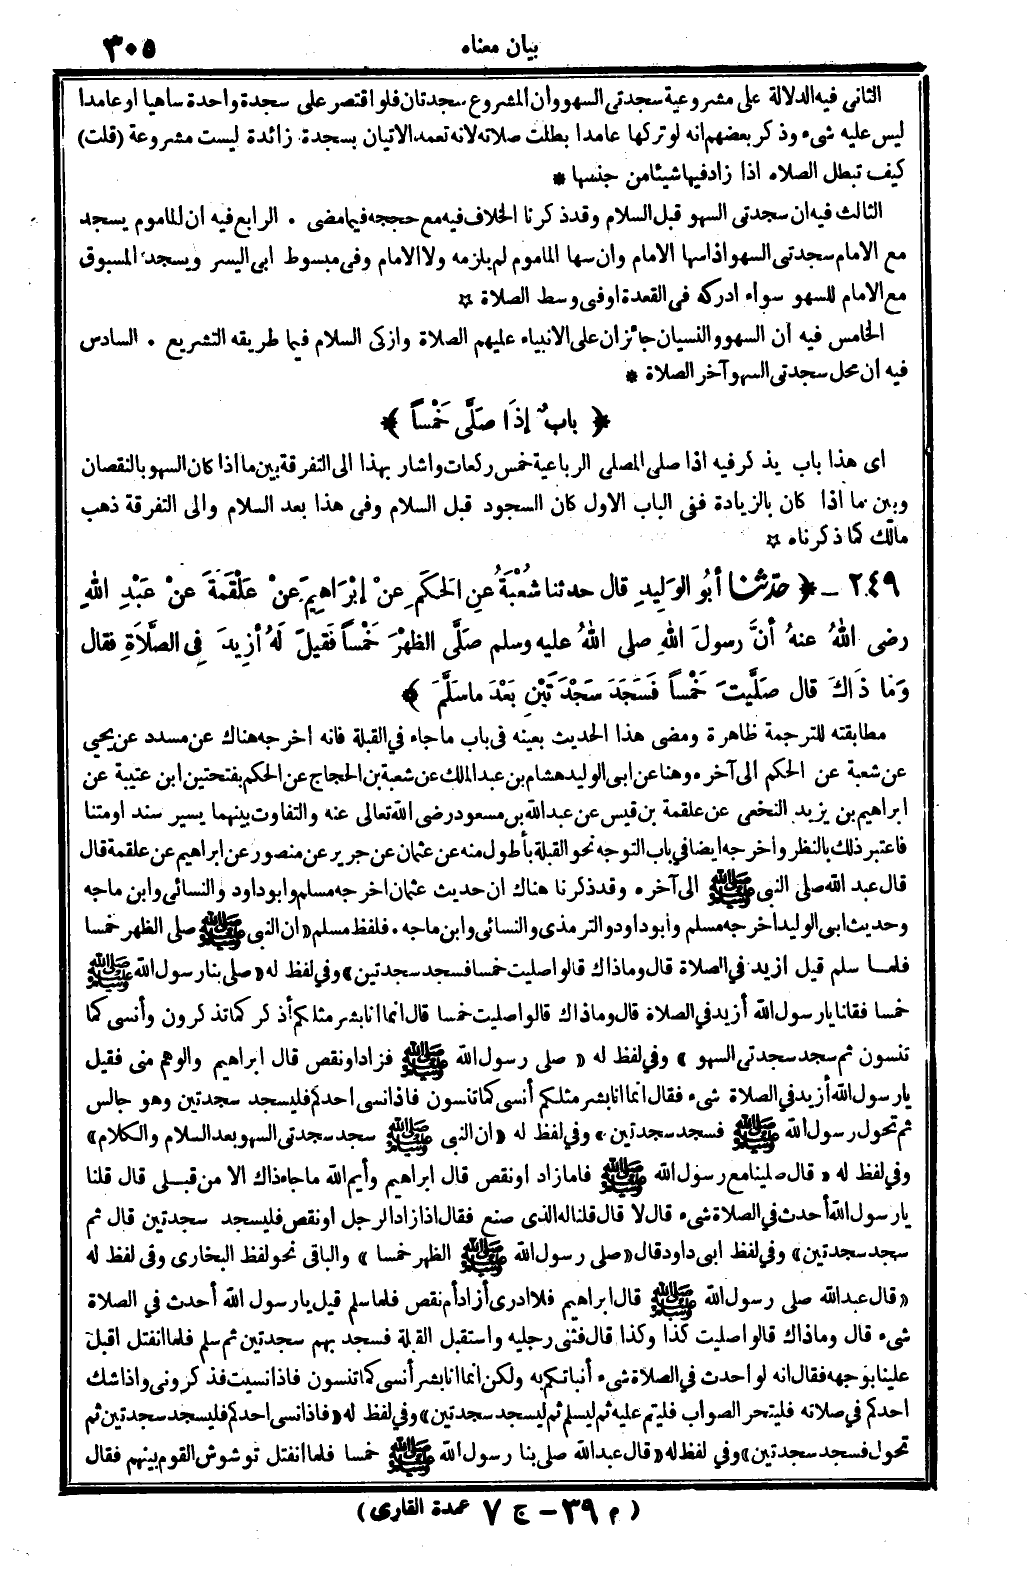 بيان معناه
٣٠٥
الثانى فيه الدلالة على مشروعية سجدتى السهو وان المشروع سجدتان فلو اقتصر على سجدة واحدة ساهيا او عامدا
ليس عليه شىء وذكر بعضهم انه لو تركها عامدا بطلت صلاته لانه تعمد الاتيان بسجدة زائدة ليست مشروعة (قلت)
كيف تبطل الصلاه اذا زاد فيها شيئا من جنسها *
الثالث فيه ان سجدتى السهو قبل السلام وقد ذكرنا الخلاف فيه مع حججه فيما مضى . الرابع فيه ان المأموم يسجد
مع الامام سجدتى السهو اذا سها الامام وان سها الماموم لم يلزمه ولا الامام وفى مبسوط ابى اليسر ويسجد المسبوق
مع الامام للسهو سواء ادركه فى القعدة او فى وسط الصلاة ☆
الخامس فيه أن السهو والنسيان جائزان على الانبياء عليهم الصلاة وازكى السلام فيما طريقه التشريع . السادس
فيه أن محل سجدتى السهو آخر الصلاة *
﴿ بابٌ إذَا صَلَّى خَمْساً ﴾
اى هذا باب يذكر فيه اذا صلى المصلى الرباعية خمس ركعات واشار بهذا الى التفرقة بين ما اذا كان السهو بالنقصان
وبين ما اذا كان بالزيادة فنى الباب الاول كان السجود قبل السلام وفى هذا بعد السلام والى التفرقة ذهب
مالك كما ذكرناه ☆
٢٤٩ – ﴿ حدّثنا أبُو الوَلِيدِ قال حدثنا شُعْبَةُ عنِ الحَكَمِ عنْ إبْرَاهِيمَ عنْ عَلْقَمَةَ عنْ عَبْدِ اللهِ
رضى اللهُ عنهُ أنَّ رسولَ اللهِ صلى اللهُ عليه وسلم صَلَّى الظهْرَ خَمْساً فَقيلَ لَهُ أزِيدَ فِى الصَّلاَةِ فقال
وَمَا ذَاكَ قال صَلَّيْتَ خَمْساً فَسَجَدَ سَجْدَتَيْنِ بَعْدَ ما سَلَّمَ ﴾
مطابقته للترجمة ظاهرة ومضى هذا الحديث بعينه فى باب ما جاء فى القبلة فانه اخرجه هناك عن مسدد عن يحيى
عن شعبة عن الحكم الى آخره وهنا عن ابى الوليد هشام بن عبد الملك عن شعبة بن الحجاج عن الحكم بفتحتين ابن عتيبة عن
ابراهيم بن يزيد النخعى عن علقمة بن قيس عن عبد الله بن مسعود رضى الله تعالى عنه والتفاوت بينهما يسير سندا ومتنا
فاعتبر ذلك بالنظر وأخرجه ايضا فى باب التوجه نحو القبلة بأطول منه عن عثمان عن جرير عن منصور عن ابراهيم عن علقمة قال
قال عبد الله صلى النبى ﷺ الى آخره وقد ذكرنا هناك ان حديث عثمان اخرجه مسلم وابو داود والنسائى وابن ماجه
وحديث ابى الوليد أخرجه مسلم وأبو داود والترمذى والنسائى وابن ماجه . فلفظ مسلم «ان النبى ﷺ صلى الظهر خمسا
فلما سلم قيل ازيد فى الصلاة قال وما ذاك قالوا صليت خمسا فسجد سجدتين» وفى لفظ له «صلى بنا رسول الله ﷺ
خمسا فقلنا يا رسول الله أزيد فى الصلاة قال وما ذاك قالوا صليت خمسا قال انما انا بشر مثلكم أذكر كما تذكرون وأنسى كما
تنسون ثم سجد سجدتى السهو » وفى لفظ له « صلى رسول الله ﷺ فزاد او نقص قال ابراهيم والوهم منى فقيل
يا رسول الله أزيد فى الصلاة شىء فقال انما انا بشر مثلكم أنسى كما تنسون فاذا نسى احدكم فليسجد سجدتين وهو جالس
ثم تحول رسول الله ﷺ فسجد سجدتين» وفى لفظ له «ان النبى ﷺ سجد سجدتى السهو بعد السلام والكلام»
وفى لفظ له « قال صلينا مع رسول الله ﷺ فاما زاد او نقص قال ابراهيم وأيم الله ما جاء ذاك الا من قبلى قال قلنا
يا رسول الله أحدث فى الصلاة شىء قال لا قال قلنا له الذى صنع فقال اذا زاد الرجل او نقص فليسجد سجدتين قال ثم
سجد سجدتين» وفى لفظ ابى داود قال «صلى رسول الله ﷺ الظهر خمسا » والباقى نحو لفظ البخارى وفى لفظ له
«قال عبد الله صلى رسول الله ﷺ قال ابراهيم فلا ادرى أزاد أم نقص فلما سلم قيل يا رسول الله أحدث فى الصلاة
شىء قال وما ذاك قالوا صليت كذا وكذا قال فثنى رجليه واستقبل القبلة فسجد بهم سجدتين ثم سلم فلما انفتل اقبل
علينا بوجهه فقال انه لو احدث فى الصلاة شىء أنبأتكم به ولكن انما انا بشر أنسى كما تنسون فاذا نسيت فذكرونى واذا شك
احدكم فى صلاته فليتحر الصواب فليتم عليه ثم ليسلم ثم ليسجد سجدتين» وفى لفظ له «فاذا نسى احدكم فليسجد سجدتين ثم
تحول فسجد سجدتين» وفى لفظ له «قال عبد الله صلى بنا رسول الله ﷺ خمسا فلما انفتل توشوش القوم بينهم فقال
( م ٣٩ – ج ٧ عمدة القارى )